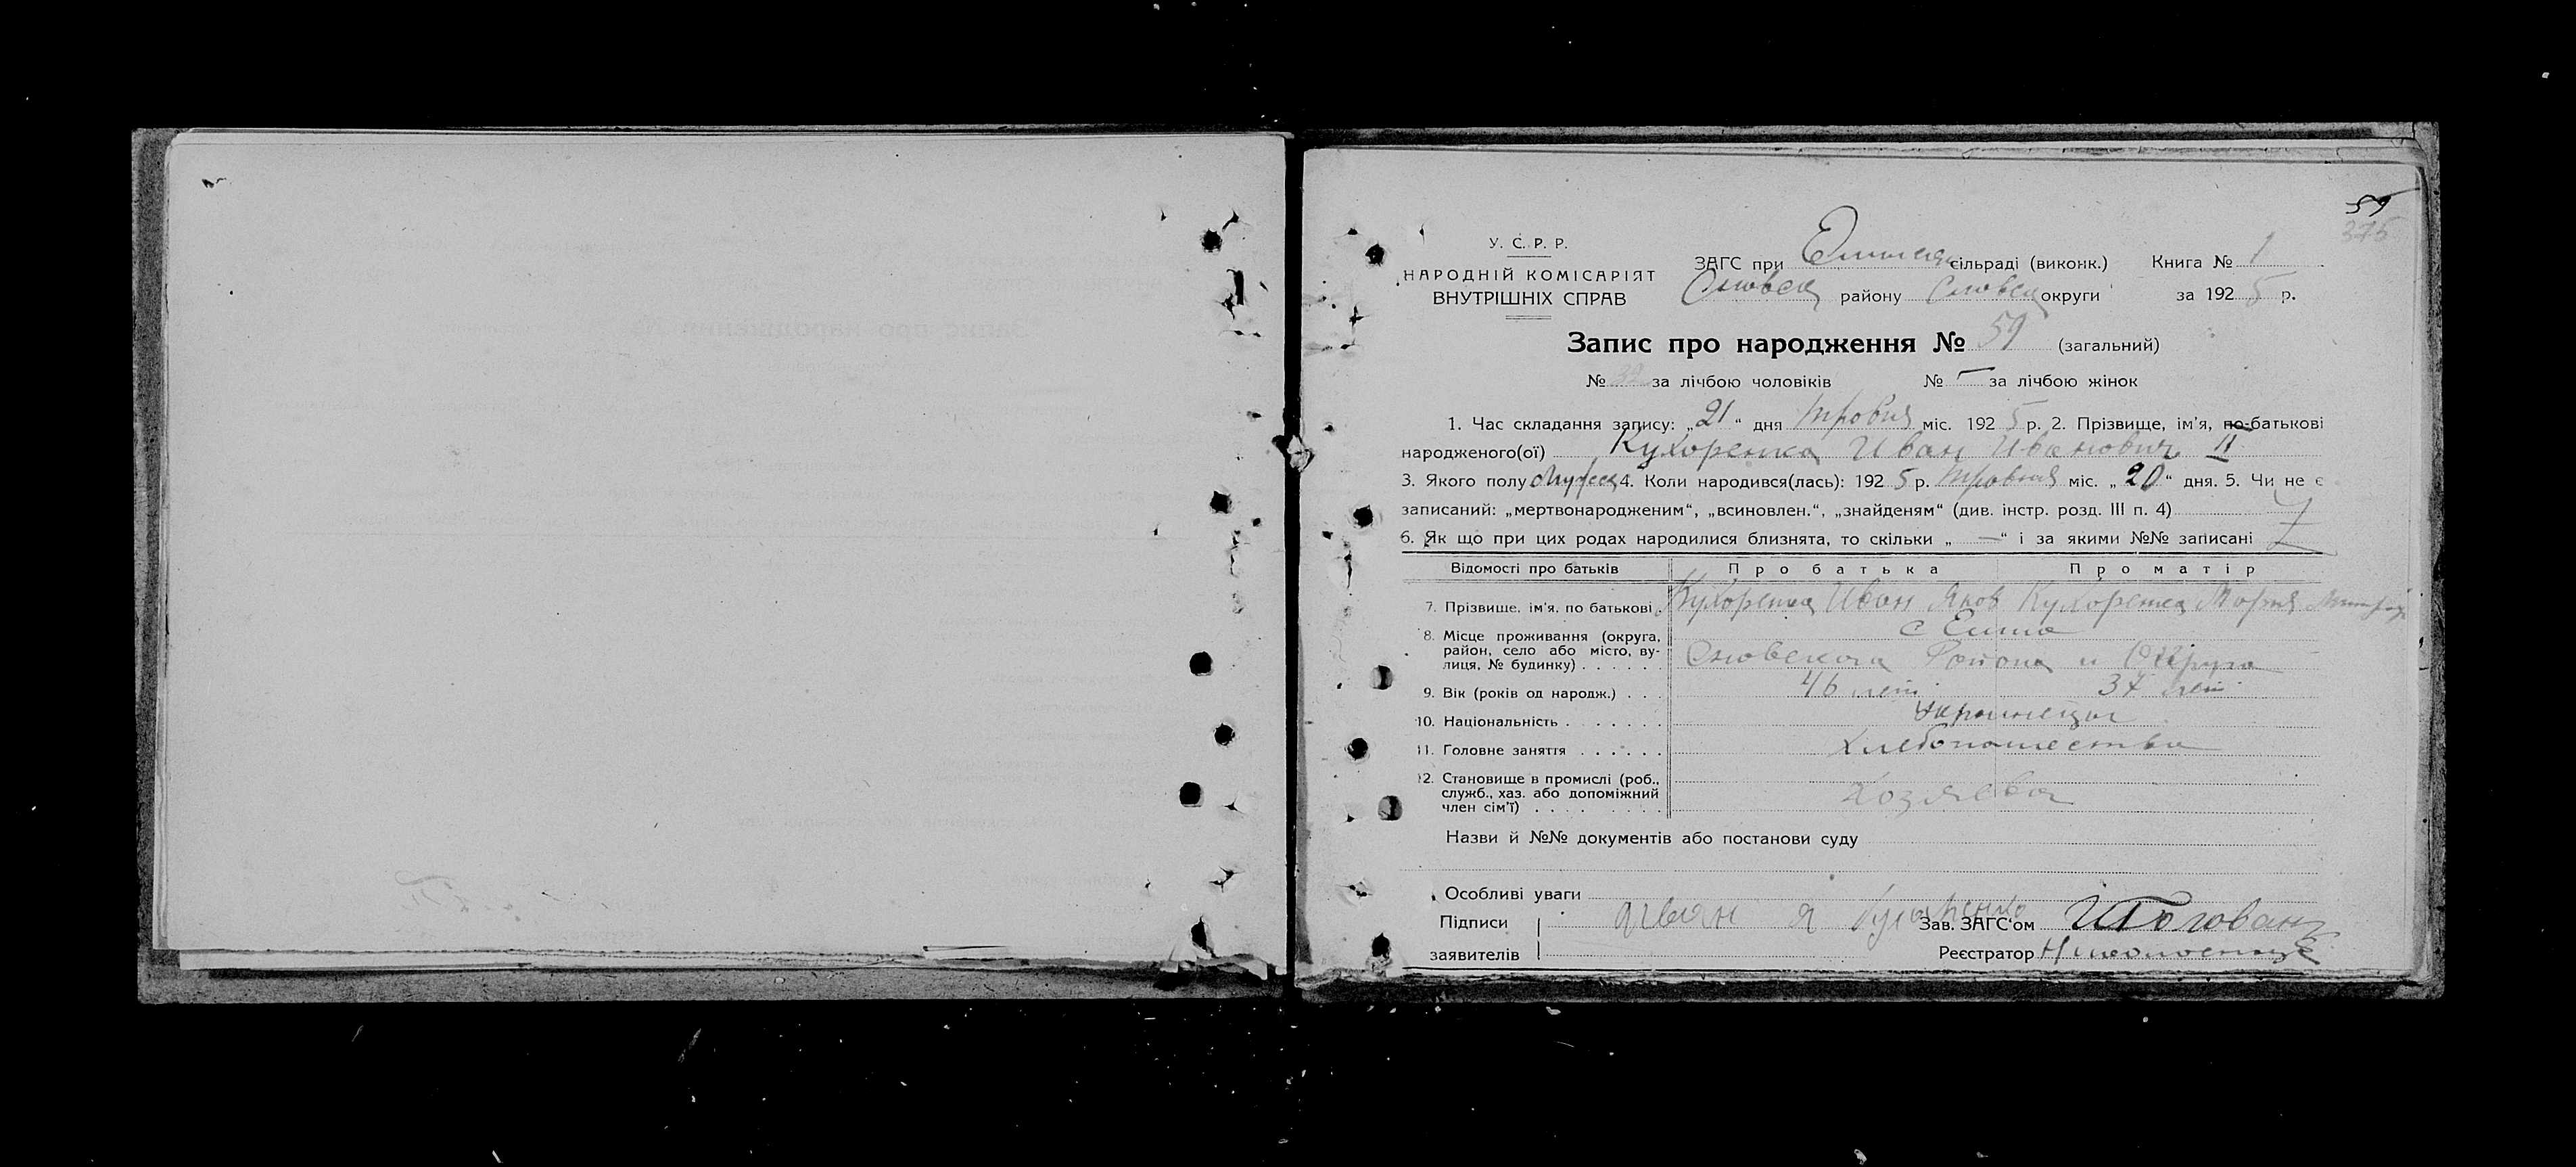 59
375
У. С. Р. Р.
НАРОДНІЙ КОМІСАРІЯТ
ВНУТРІШНІХ СПРАВ
ЗАГС при сільраді (виконк.) Книга № 1
Сновск району Сновск округи за 1925 р.
Запис про народження № 59 (загальний)
№ 32 за лічбою чоловіків № — за лічбою жінок
1. Час складання запису: „21“ дня травня міс. 1925 р. 2. Прізвище, ім'я, по-батькові
народженого(ої) Кухоренко Иван Иванович II
3. Якого полу мужеск 4. Коли народився(лась): 1925 р. травня міс. „20“ дня. 5. Чи не є
записаний: „мертвонародженим“, „всиновлен.“, „знайденям“ (див. інстр. розд. III п. 4)
6. Як що при цих родах народилися близнята, то скільки „—“ і за якими №№ записані
Відомості про батьків Про батька Про матір
7. Прізвище, ім'я, по батькові. Кухоренко Иван Яков Кухоренко Мария
8. Місце проживання (округа, район, село або місто, вулиця, № будинку) . . . . . с Елино
Сновского Района и Округа
9. Вік (років од народж.) . . . 46 лет 37 лет
10. Національність . . . . . . . Украинецы
11. Головне заняття . . . . . . Хлебопашество
12. Становище в промислі (роб., служб., хаз. або допоміжний член сім'ї) . . . . . . . . Хозяева
Назви й №№ документів або постанови суду
Особливі уваги
Підписи Зав. ЗАГС'ом
заявителів Реєстратор